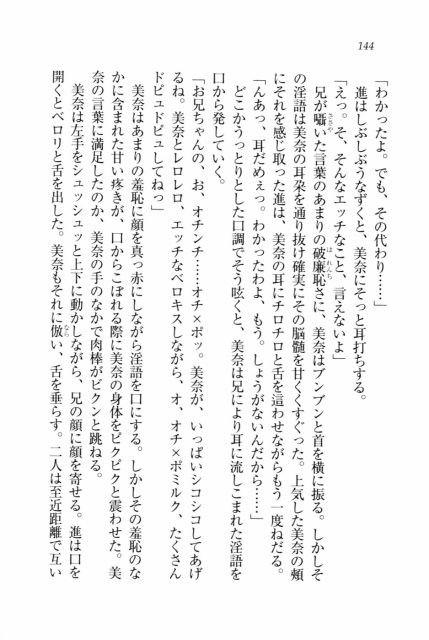 144
「わかったよ。でも、その代わり……」
進はしぶしぶうなずくと、美奈にそっと耳打ちする。
「えっ。そ、そんなエッチなこと、言えないよ」
兄が囁いた言葉のあまりの破廉恥さに、美奈はブンブンと首を横に振る。しかしそ
の淫語は美奈の耳朶を通り抜け確実にその脳髄を甘くくすぐった。上気した美奈の頬
にそれを感じ取った進は、美奈の耳にチロチロと舌を這わせながらもう一度ねだる。
「んあっ、耳だめぇっ。わかったわよ、もう。しょうがないんだから……」
どこかうっとりとした口調でそう呟くと、美奈は兄により耳に流しこまれた淫語を
口から発していく。
「お兄ちゃんの、お、オチンチ……オチ×ポッ。美奈が、いっぱいシコシコしてあげ
るね。美奈とレロレロ、エッチなベロキスしながら、オ、オチ×ポミルク、たくさん
ドピュドピュしてねっ」
美奈はあまりの羞恥に顔を真っ赤にしながら淫語を口にする。しかしその羞恥のな
かに含まれた甘い疼きが、口からこぼれる際に美奈の身体をピクピクと震わせた。美
奈の言葉に満足したのか、美奈の手のなかで肉棒がビクンと跳ねる。
美奈は左手をシュッシュッと上下に動かしながら、兄の顔に顔を寄せる。進は口を
開くとベロリと舌を出した。美奈もそれに倣い、舌を垂らす。二人は至近距離で互い